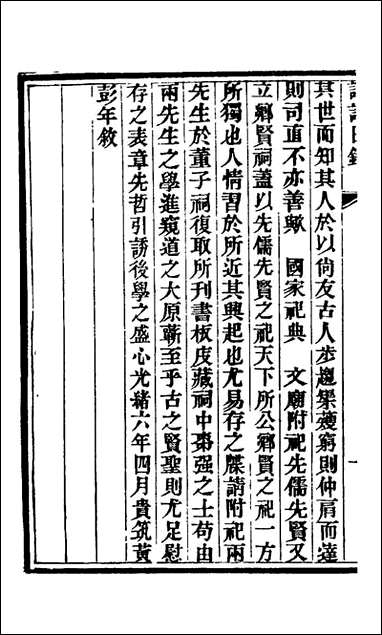 其世而知其人於以尙友古人步趨榘矱窮則仲肩而達
則司直不亦善歟　國家祀典　文廟附祀先儒先賢又
立鄉賢祠蓋以先儒先賢之祀天下所公鄉賢之祀一方
所獨也人情習於所近其興起也尤易存之牒請附祀兩
先生於董子祠復取所刊書板庋藏祠中棗强之士苟由
兩先生之學進窺道之大原蘄至乎古之賢聖則尤足慰
存之表章先哲引誘後學之盛心光緒六年四月貴筑黃
彭年敘